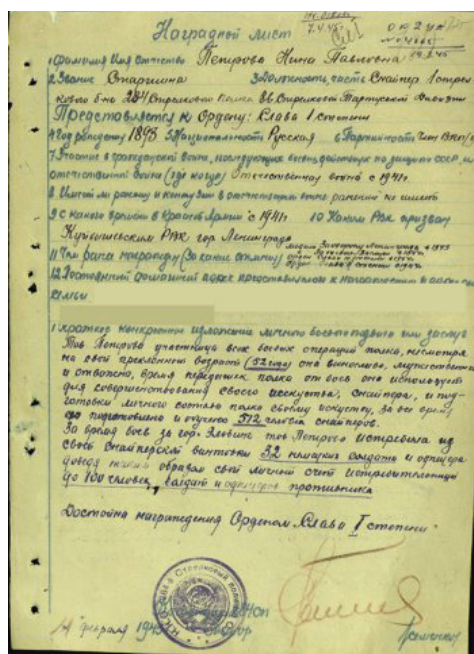 7.4.45.
Наградной лист
1 Фамилия Имя Отчество Петрова Нина Павловна
2 Звание Старшина 3 Должность, часть Снайпер 1 стрел
кового б-на 284 Стрелкового Полка 86 Стрелковой Тартуской Дивизии
Представляется к Ордену: Слава I степени
4 Год рождения 1893 5 Национальность Русская 6 Партийность Член ВКП/б
7 Участие в гражданской войне, последующих боевых действиях по защите СССР, и
отечественной войне (где когда) Отечественной войне с 1941г
8 Имеет ли ранения и контузии в отечественной войне ранений не имеет
9 С какого времени в Красной Армии с 1941г 10 Каким РВК призван
Куйбышевским РВК гор Ленинграда
11 Чем ранее награжден (за какие отличия)
12 Постоянный домашний адрес представляемого к награждению и адрес его
семьи
1 краткое конкретное изложение личного боевого подвига или заслуг
Тов Петрова участница всех боевых операций полка, несмотря
на свой преклонный возраст (52 года) она вынослива, мужественна
и отважна, время передышек полка от боев она использует
для совершенствования своего искусства, снайпера, и под-
готовки личного состава полка своему искусству, за все время
ею подготовлено и обучено 512 человек снайперов.
За время боев за гор. Эльбинг тов Петрова истребила из
своей снайперской винтовки 32 немецких солдата и офицера
доведя таким образом свой личный счет истребительный
до 100 человек, солдат и офицеров противника
Достойна награждения Орденом Слава I степени
284 СП
14 февраля 1945 майор